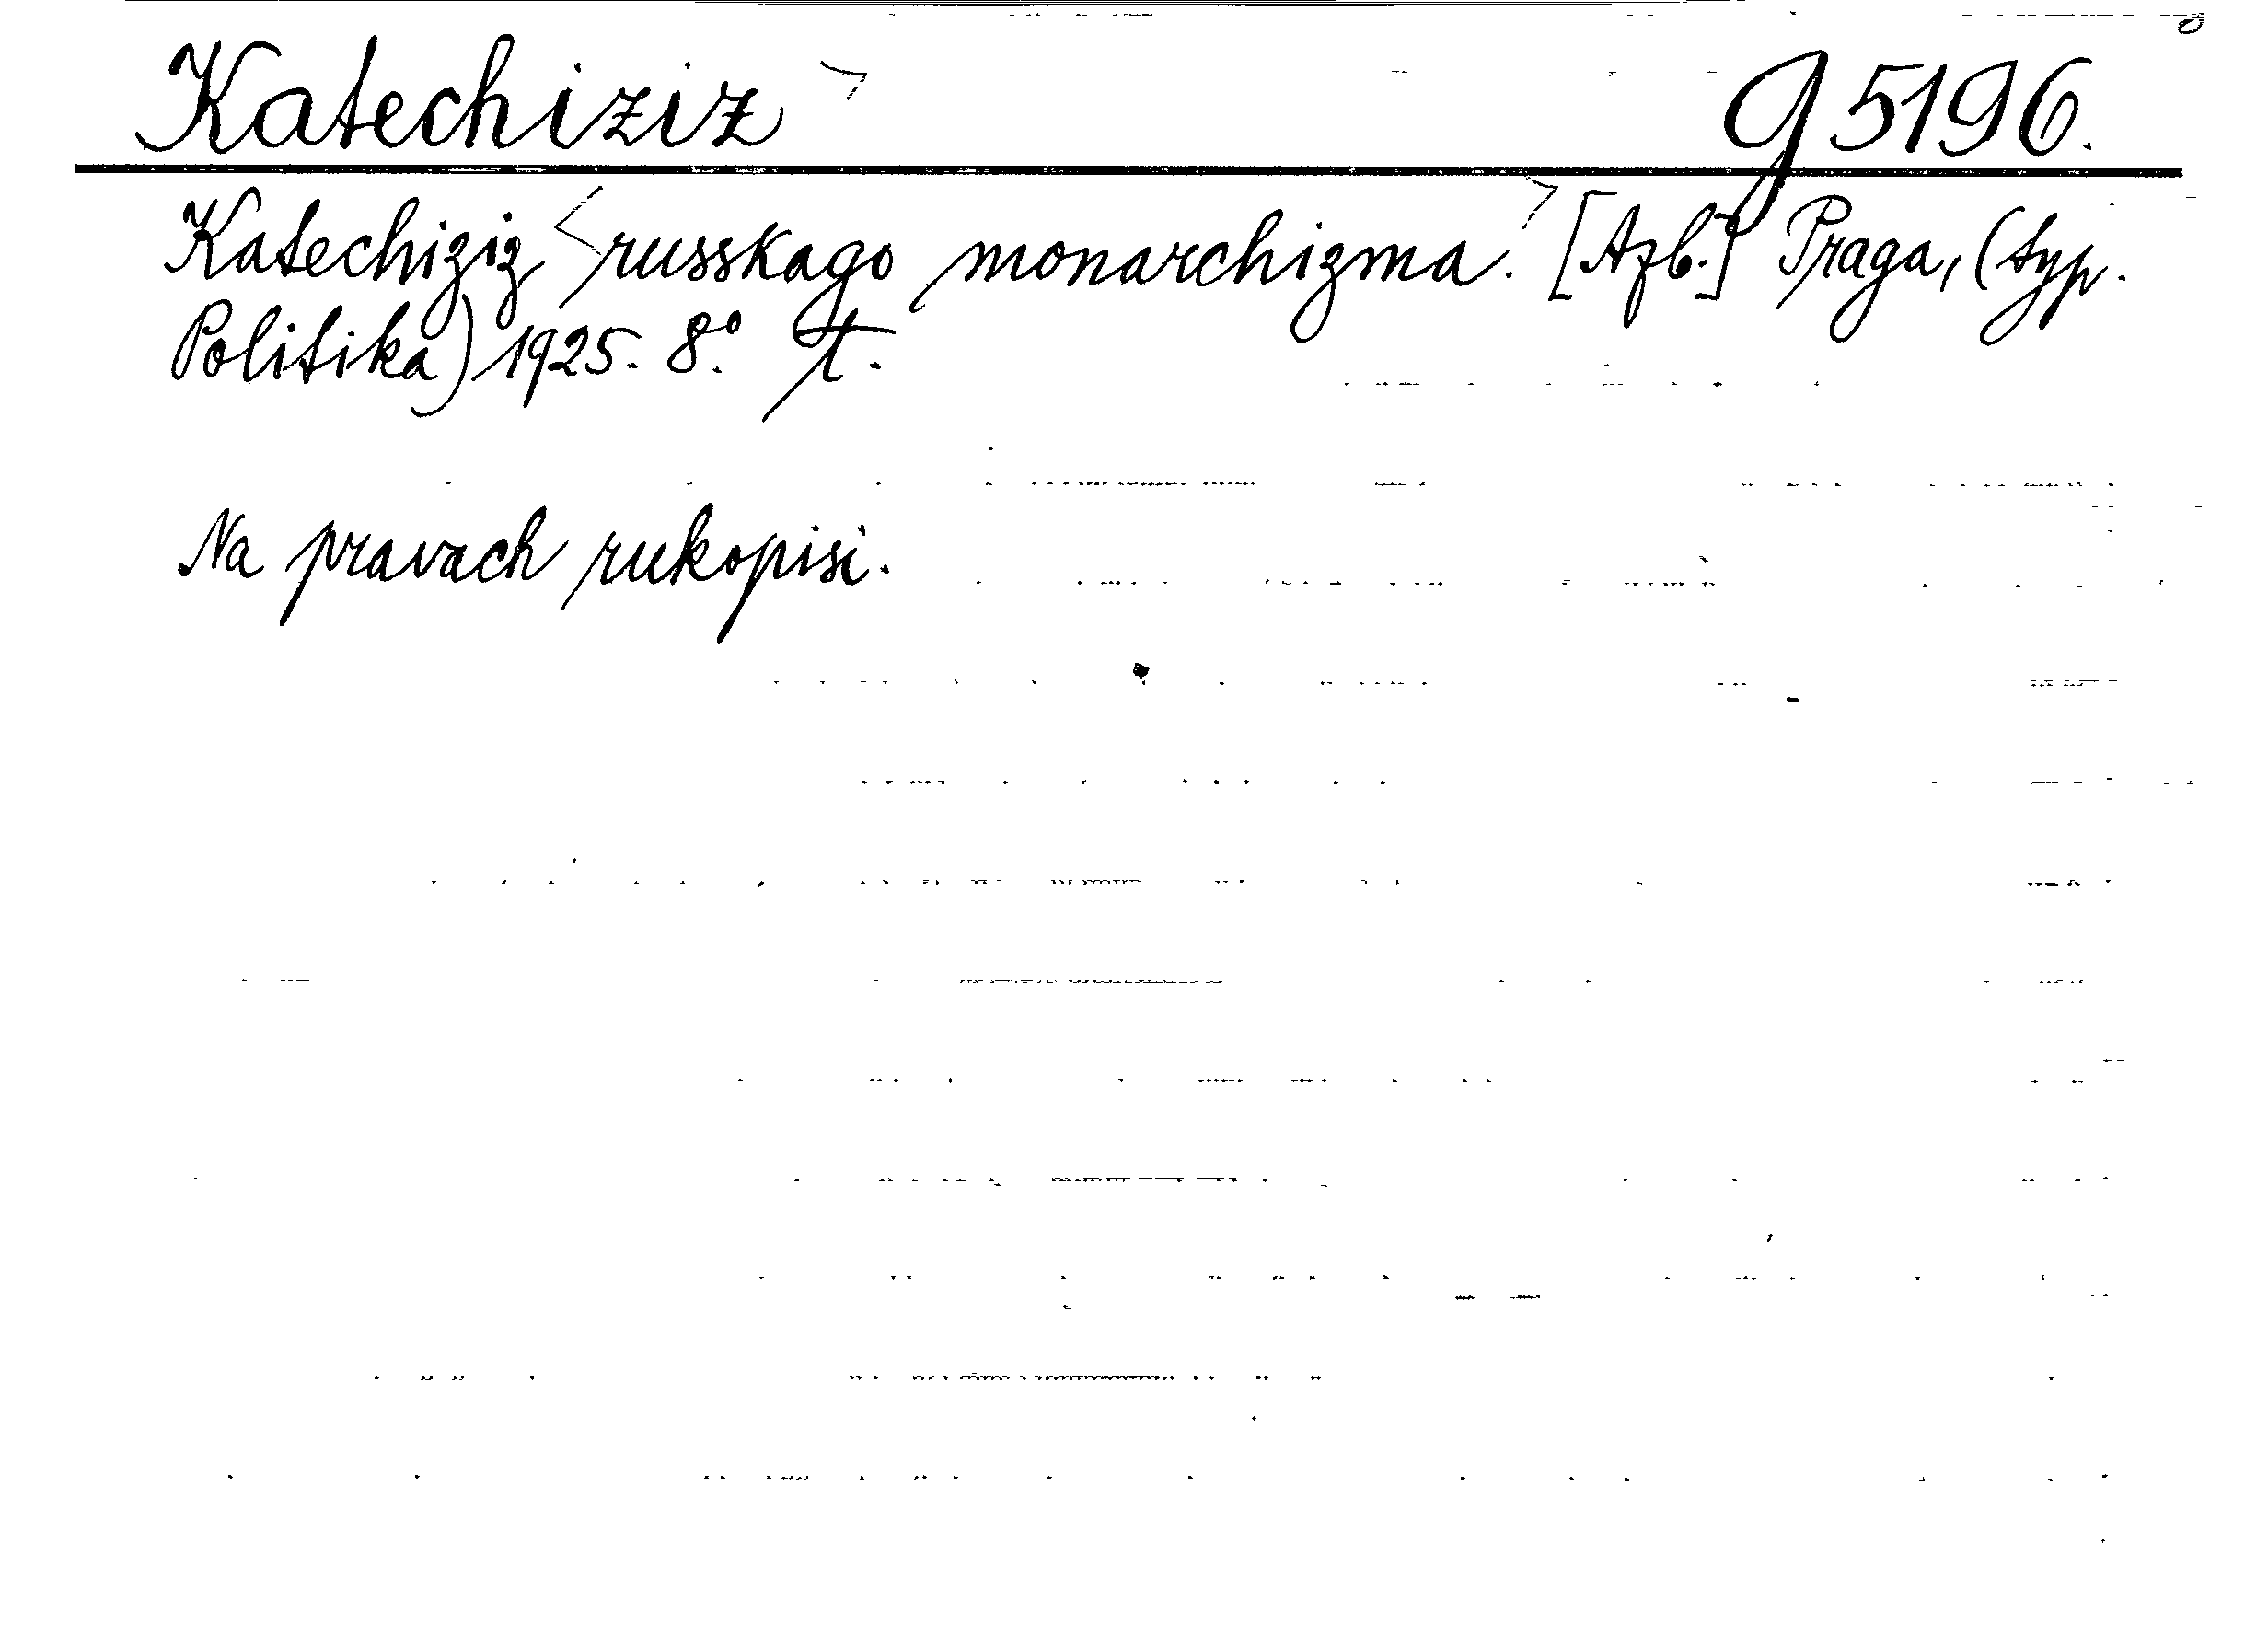 Katechiziz g 5196.
Katechiziz russkago monarchizma. [Azb.] Praga, (typ.
Politika) 1925. 8°. T.
Na pravach rukopisi.